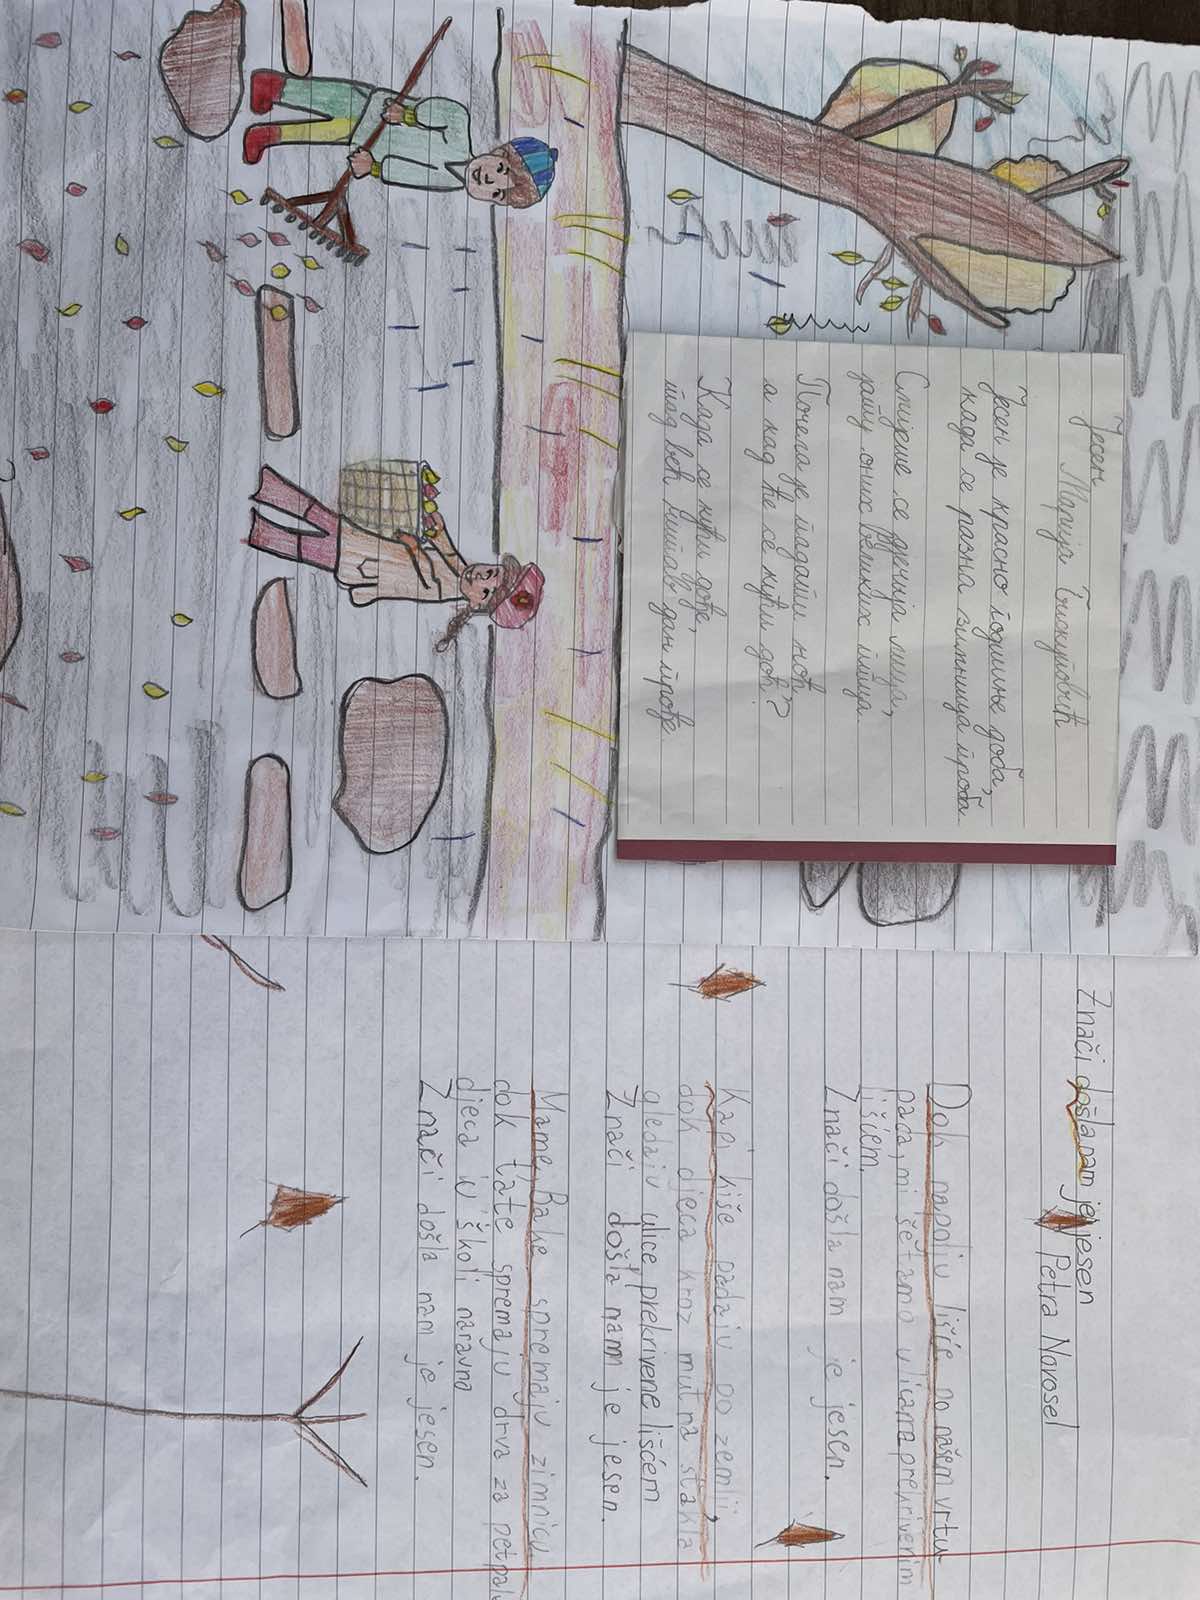 Јесен
Марија Бискуповић
Јесен је красно годишње доба,
када се разна зимница проба.
Смијеше се дјечија лица,
јашу оних великих птица.
Почела је падати ноћ,
а кад ће се кући доћ?
Када се кући дође,
тад већ читав дан прође.
Znači došla nam je jesen
Petra Novosel
Dok napolju lišće po našem vrtu
pada, mi šetamo ulicama prekrivenim
lišćem.
Znači došla nam je jesen.
Kapi kiše padaju po zemlji,
dok djeca kroz mutna stakla
gledaju ulice prekrivene lišćem
Znači došla nam je jesen.
Mame, Bake spremaju zimnicu
dok tate spremaju drva za
djeca u školi naravno
Znači došla nam je jesen.